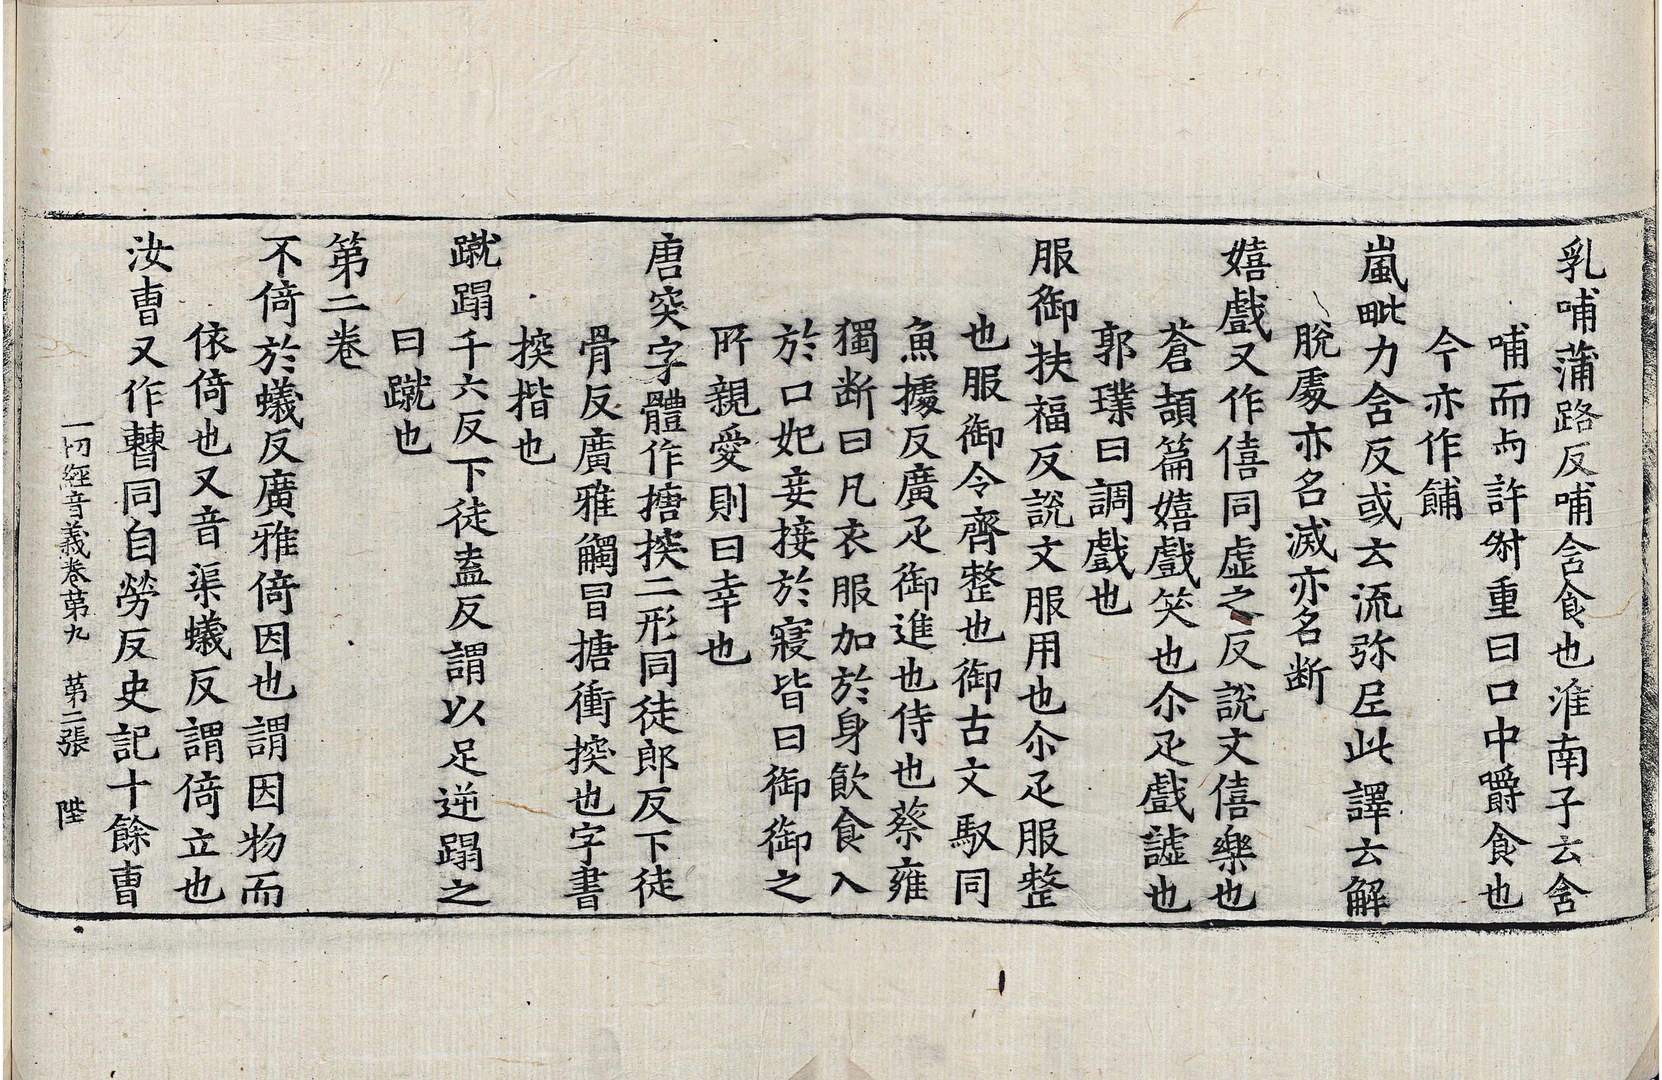 乳哺蒲路反哺含食也淮南子云含
哺而與許尌重曰口中嚼食也
今亦作餔
嵐毗力含反或云流弥尼此譯云解
脫處亦名滅亦名断
嬉戲又作僖同虚之反說文僖樂也
蒼頡篇嬉戲笑也尒疋戲謔也
郭璞曰調戲也
服御扶福反說文服用也尒疋服整
也服御令齊整也御古文馭同
魚據反廣疋御進也侍也蔡雍
獨断曰凡衣服加於身飲食入
於口妃妾接於寢皆曰御御之
所親愛則曰幸也
唐突字體作搪揬二形同徒郎反下徒
骨反廣雅觸冒搪衝揬也字書
揬揩也
蹴蹋千六反下徒盍反謂以足逆蹋之
曰蹴也
第二卷
不倚於蟻反廣雅倚因也謂因物而
依倚也又音渠蟻反謂倚立也
汝曺又作䜊同自勞反史記十餘曺
一切經音義卷第九 第二張 陛